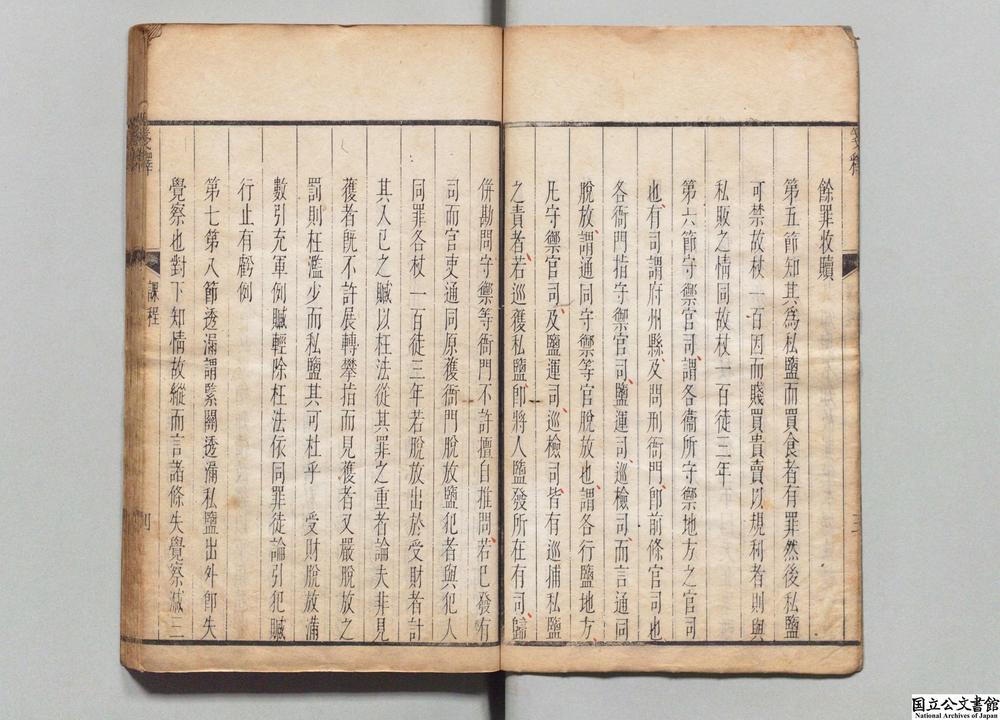 餘罪收贖
第五節知其為私鹽而買食者有罪然後私鹽
可禁故杖一百因而賤買貴賣以規利者則與
私販之情同故杖一百徒三年
第六節守禦官司謂各衞所守禦地方之官司
也有司謂府州縣及問刑衙門卽前條官司也
各衙門指守禦官司鹽運司巡檢司而言通同
脫放謂通同守禦等官脫放也謂各行鹽地方
凡守禦官司及鹽運司巡檢司皆有巡捕私鹽
之責者若巡獲私鹽卽將人鹽發所在有司歸
併勘問守禦等衙門不許擅自推問若已發有
司而官吏通同原獲衙門脫放鹽犯者與犯人
同罪各杖一百徒三年若脫放出於受財者計
其入己之贓以枉法從其罪之重者論夫非見
獲者旣不許展轉攀指而見獲者又嚴脫放之
罰則枉濫少而私鹽其可杜乎　受財脫放滿
數引充軍例贓輕除枉法依同罪徒論引犯贓
行止有虧例
第七第八節透漏謂緊關透漏私鹽出外卽失
覺察也對下知情故縱而言諸條失覺察減三
箋釋
課程
三
箋釋
四
国立公文書館
National Archives of Japan